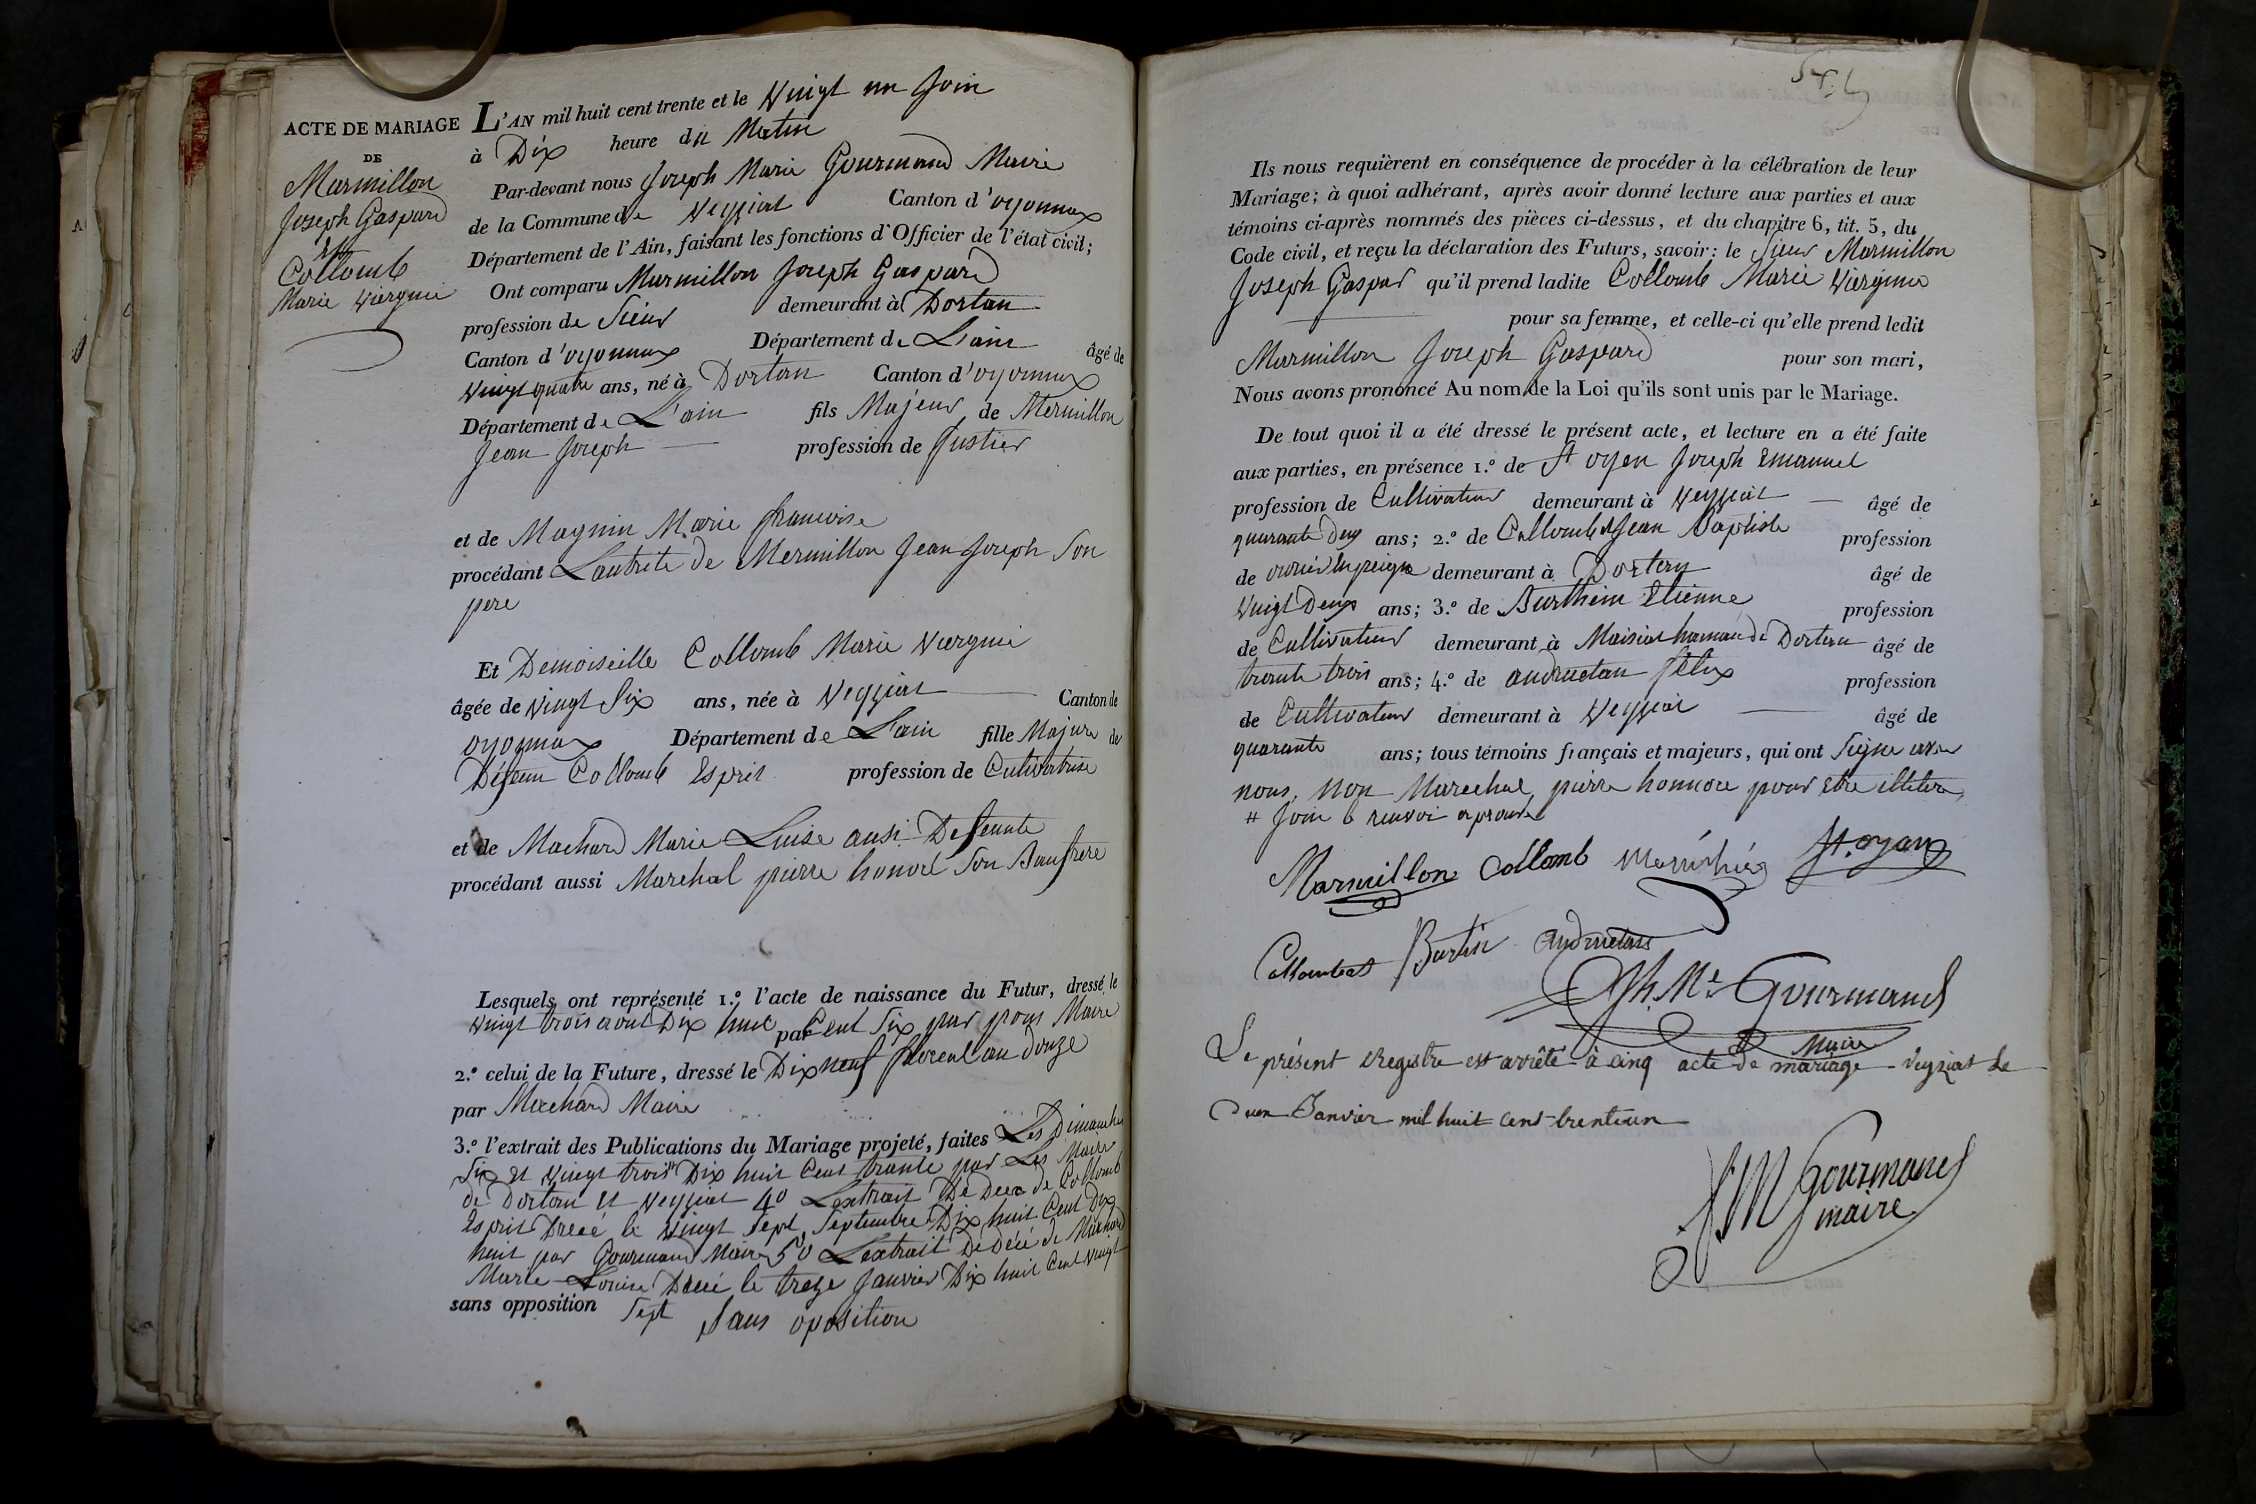 ACTE DE MARIAGE
DE
Marmillon
Joseph Gaspard
Et
Collomb
Marie Viergnie
L'AN mil huit cent trente et le Vuigt un Join
à Dix heure du Matin
Par-devant nous Joseph Marie Gourmand Maire
de la Commune de Veyziat Canton d'oyonnax
Département de l'Ain, faisant les fonctions d'Officier de l'état civil;
Ont comparu Marmillon Joseph Gaspard
profession de Sieur demeurant à Dortan
Canton d'oyonnax Département de L'ain âgé de
Vuigt quatre ans, né à Dortan Canton d'oyonnax
Département de L'ain fils Majeur de Mermillon
Jean Joseph profession de Justier
et de Magnin Marie francoise
procédant Lautrite de Mermillon Jean Joseph Son
pere
Et Demoiselle Collomb Marie Viergnie
âgée de Vingt Six ans, née à Veyziat Canton de
oyonnax Département de L'ain fille Majure de
Défeun Collomb Esprit profession de Cutivatrise
et de Machard Marie Luise ausi Deffeunte
procédant aussi Marehal pierre honoré Son Baufrere
Lesquels ont représenté 1.º l'acte de naissance du Futur, dressé le
Vuigt trois aout Dix huit par Cent Six par pons Maire
2.º celui de la Future, dressé le Dix neuf floreal an douze
par Machard Maire
3.º l'extrait des Publications du Mariage projeté, faites Les Dimanches
Six et Vuingt trois # Dix huit Cent trante par Les Maire
de Dortan et Veyziat 4º Lextrait De Decé de Collomb
Esprit Decé le Vingt Sept Septembre Dix huit Cent Dix
huit par Gourmand Maire 5º Lextrait De Décé de Machard
Marie Louise Decé le treze Janvier Dix huit Cent Vingt
sans opposition Sept Sans oposition
Ils nous requièrent en conséquence de procéder à la célébration de leur
Mariage; à quoi adhérant, après avoir donné lecture aux parties et aux
témoins ci-après nommés des pièces ci-dessus, et du chapitre 6, tit. 5, du
Code civil, et reçu la déclaration des Futurs, savoir: le Sieur Marmillon
Joseph Gaspar qu'il prend ladite Collomb Marie Viergnie
pour sa femme, et celle-ci qu'elle prend ledit
Marmillon Joseph Gaspard pour son mari,
Nous avons prononcé Au nom de la Loi qu'ils sont unis par le Mariage.
De tout quoi il a été dressé le présent acte, et lecture en a été faite
aux parties, en présence 1.º de St oyen Joseph Emanuel
profession de Cultivateur demeurant à Veyziat âgé de
quarante Deux ans; 2.º de Collombet Jean Baptiste profession
de ovrier en peigne demeurant à Dortan âgé de
Vuigt Deux ans; 3.º de Burthein Etienne profession
de Cultivateur demeurant à Maisiat hamau de Dortan âgé de
trante trois ans; 4.º de andruetan félix profession
de Cultivateur demeurant à Veyziat âgé de
quarante ans; tous témoins français et majeurs, qui ont Signe avec
nous, Non Marechal pierre honnoré pour Etre illitere
# Join 6 renvoi aprouve
Marmillon Collomb St. oyan
Collombet Burtin Andruetan
Jph. Me Gourmand
Maire
Le présent Registre est arrêté à cinq acte de mariage. veyziat le
un Janvier mil huit cent trente un
JM Gourmand
maire